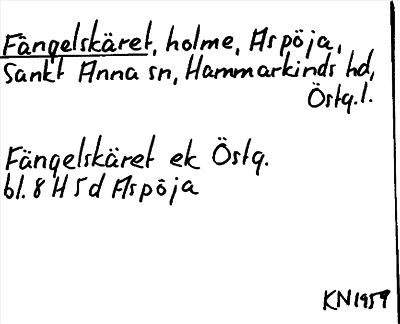 Fängelskäret, holme, Aspöja,
Sankt Anna sn, Hammarkinds hd,
Östg.l.
Fängelskäret ek Östg.
bl. 8 H 5 d Aspöja
KN 1959